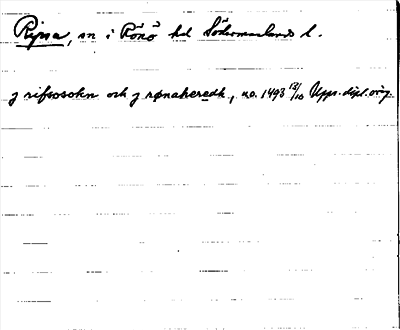 Ripsa, sn i Rönö hd Södermanlands l.
j rifsosokn och j rønaheredh, u.o. 1493 12/10 Upps. dipl. orig.